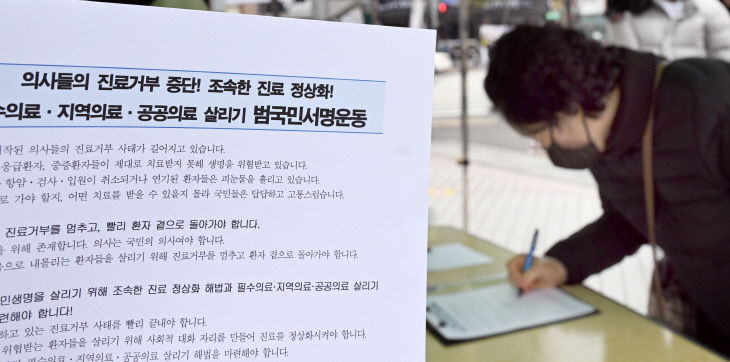 의사들의 진료거부 중단! 조속한 진료 정상화!
수의료·지역의료·공공의료 살리기 범국민서명운동
작된 의사들의 진료거부 사태가 길어지고 있습니다.
응급환자, 중증환자들이 제대로 치료받지 못해 생명을 위협받고 있습니다.
·항암·검사·입원이 취소되거나 연기된 환자들은 피눈물을 흘리고 있습니다.
로 가야 할지, 어떤 치료를 받을 수 있을지 몰라 국민들은 답답하고 고통스럽습니다.
진료거부를 멈추고, 빨리 환자 곁으로 돌아가야 합니다.
을 위해 존재합니다. 의사는 국민의 의사여야 합니다.
으로 내몰리는 환자들을 살리기 위해 진료거부를 멈추고 환자 곁으로 돌아가야 합니다.
민생명을 살리기 위해 조속한 진료 정상화 해법과 필수의료·지역의료·공공의료 살리기
련해야 합니다!
하고 있는 진료거부 사태를 빨리 끝내야 합니다.
위협받는 환자들을 살리기 위해 사회적 대화 자리를 만들어 진료를 정상화시켜야 합니다.
필수의료·지역의료·공공의료 살리기 해법을 마련해야 합니다.